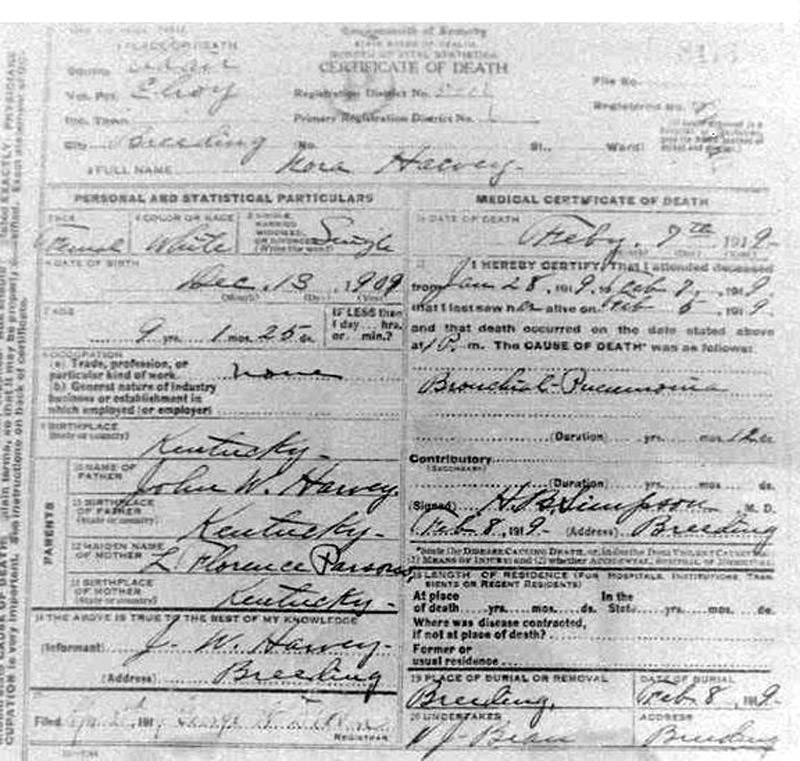 Commonwealth of Kentucky
STATE BOARD OF HEALTH
BUREAU OF VITAL STATISTICS
CERTIFICATE OF DEATH
1 PLACE OF DEATH
County Adair
Vot. Pct. Elroy
Inc. Town
City Breeding
Registration District No.
Primary Registration District No.
No. St., Ward
File No.
Registered No.
2 FULL NAME Nora Harvey
PERSONAL AND STATISTICAL PARTICULARS
3 SEX Female
4 COLOR OR RACE White
5 SINGLE, MARRIED, WIDOWED, OR DIVORCED (Write the word) Single
6 DATE OF BIRTH
Dec. 13, 1909
(Month) (Day) (Year)
7 AGE
9 yrs. 1 mos. 25 ds.
IF LESS than
1 day ... hrs.
or ... min.?
8 OCCUPATION
(a) Trade, profession, or
particular kind of work none
(b) General nature of industry
business or establishment in
which employed (or employer)
9 BIRTHPLACE
(State or country) Kentucky
PARENTS
10 NAME OF
FATHER John W. Harvey
11 BIRTHPLACE
OF FATHER
(State or country) Kentucky
12 MAIDEN NAME
OF MOTHER L Florence Parson
13 BIRTHPLACE
OF MOTHER
(State or country) Kentucky
14 THE ABOVE IS TRUE TO THE BEST OF MY KNOWLEDGE
(Informant) J. W. Harvey
(Address) Breeding
Filed 191 George
REGISTRAR
MEDICAL CERTIFICATE OF DEATH
16 DATE OF DEATH
Feby. 7th 1919
(Month) (Day) (Year)
17 I HEREBY CERTIFY, That I attended deceased
from Jan 28, 1919, to Feb 7, 1919,
that I last saw her alive on Feb 5, 1919,
and that death occurred on the date stated above
at 1 P. m. The CAUSE OF DEATH* was as follows:
Bronchial-Pneumonia
(Duration) yrs. mos. 12 ds.
Contributory
(SECONDARY)
(Duration) yrs. mos. ds.
(Signed) H. B. Simpson M. D.
Feb 8, 1919 (Address) Breeding
*State the DISEASE CAUSING DEATH, or, in deaths from VIOLENT CAUSES
(1) MEANS OF INJURY; and (2) whether ACCIDENTAL, SUICIDAL or HOMICIDAL
18 LENGTH OF RESIDENCE (FOR HOSPITALS, INSTITUTIONS, TRANSIENTS OR RECENT RESIDENTS)
At place
of death yrs. mos. ds.
In the
State yrs. mos. ds.
Where was disease contracted,
if not at place of death?
Former or
usual residence
19 PLACE OF BURIAL OR REMOVAL
Breeding
DATE OF BURIAL
Feb 8 1919
20 UNDERTAKER
J. Bean
ADDRESS
Breeding